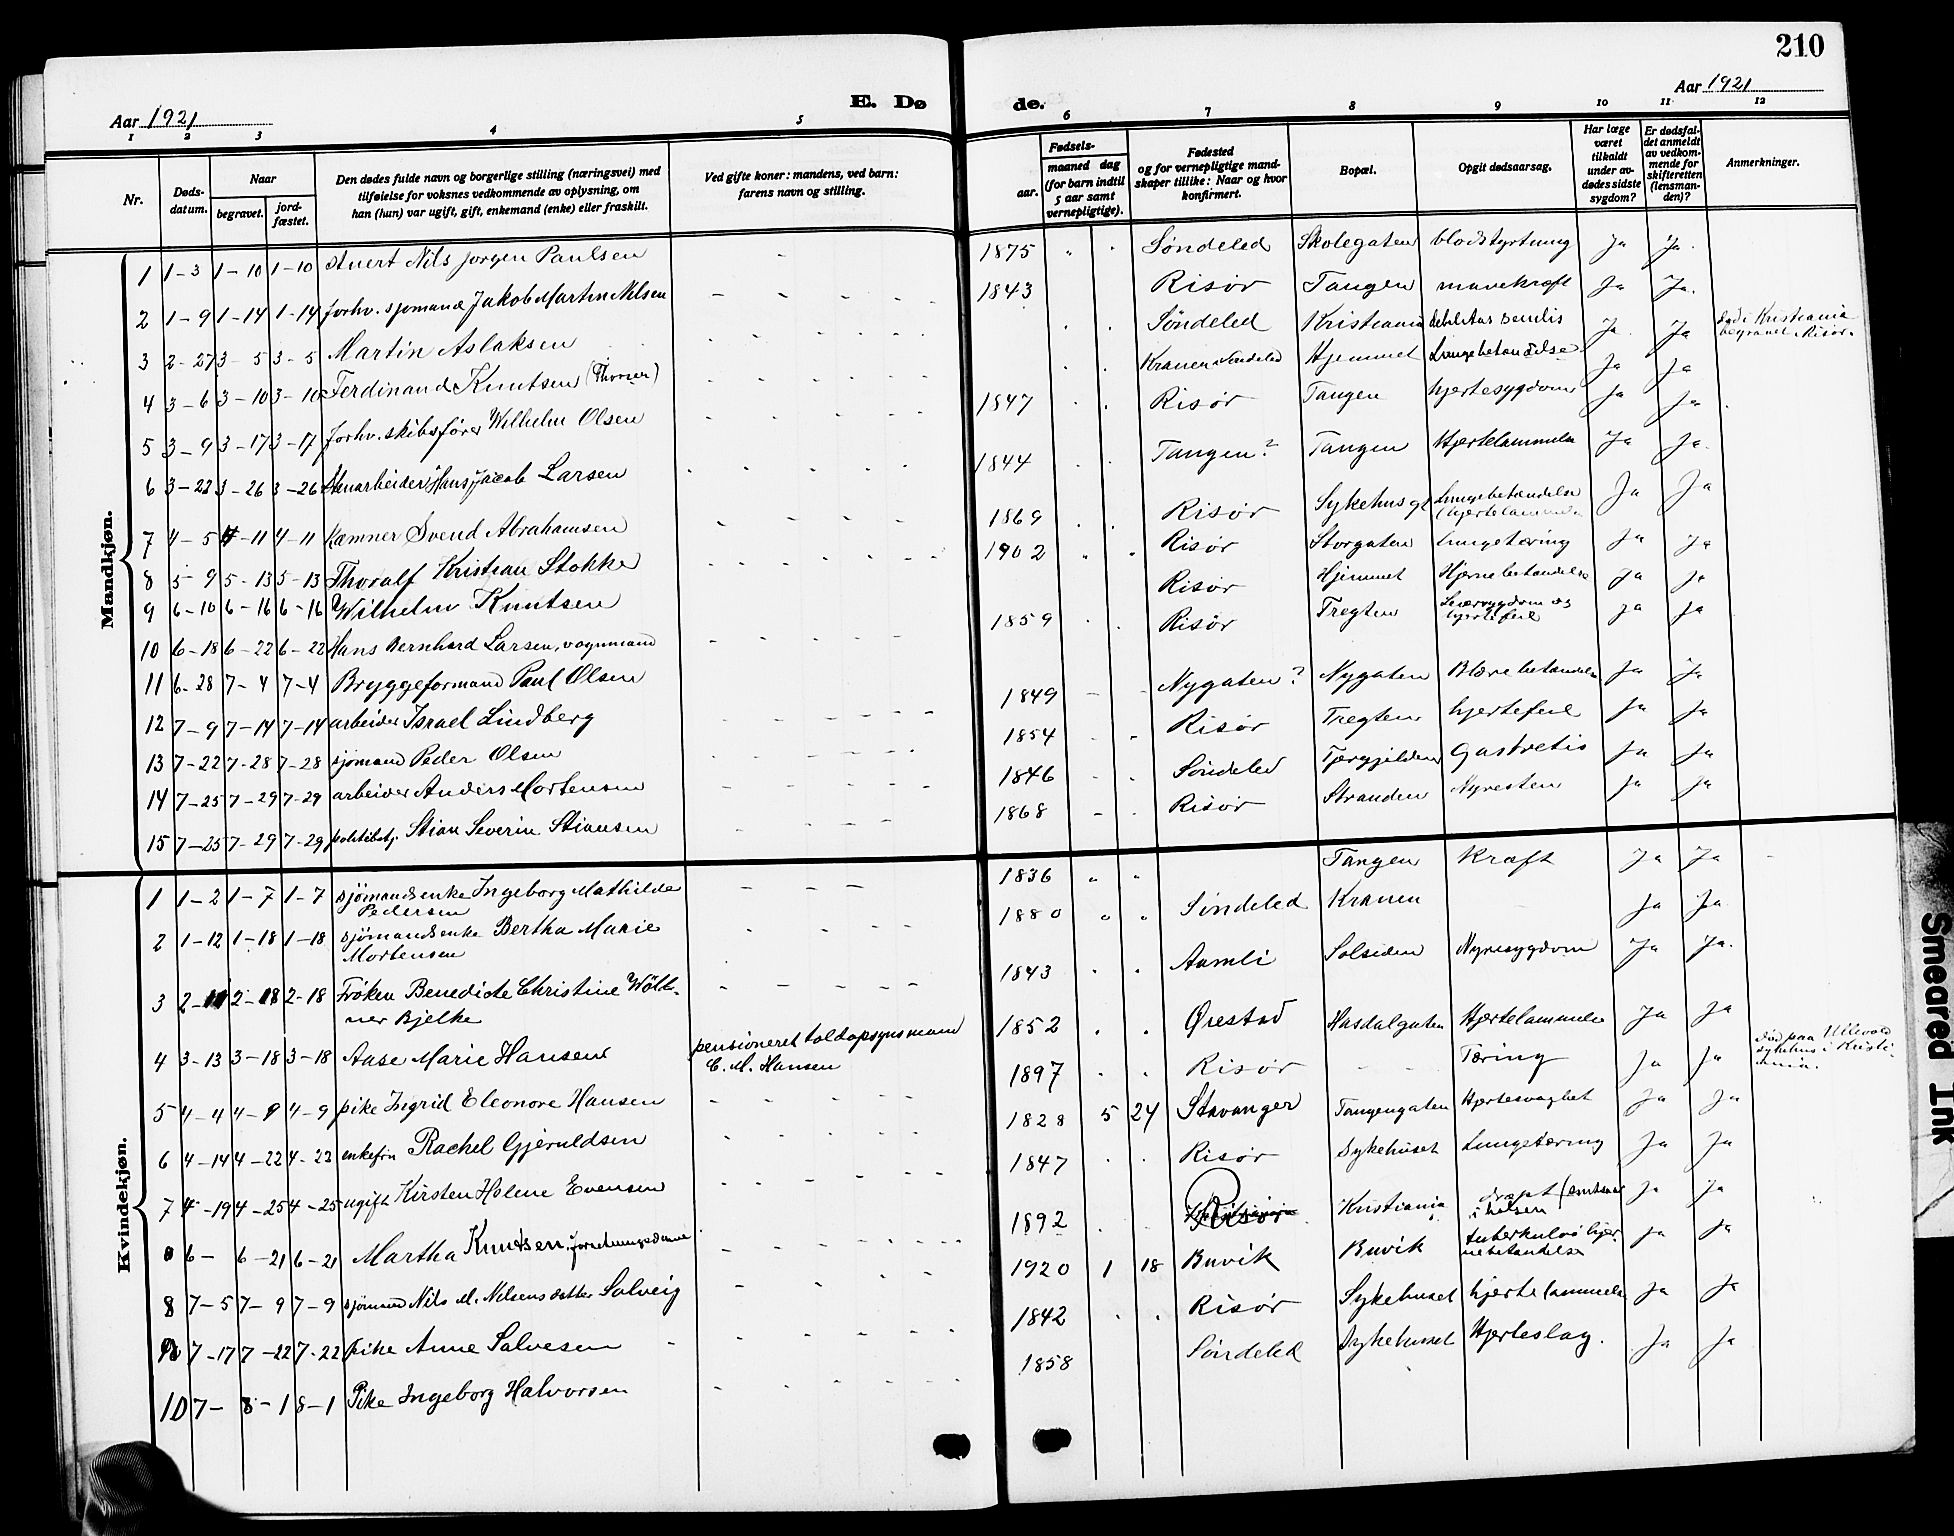 210
Aar 1921
E. Dø
de.
Aar 1921
1 2 3 4 5 6 7 8 9 10 11 12
Nr.
Døds-
datum.
Naar
begravet.
jord-
fæstet.
Den dødes fulde navn og borgerlige stilling (næringsvei) med
tilføielse for voksnes vedkommende av oplysning, om
han (hun) var ugift, gift, enkemand (enke) eller fraskilt.
Ved gifte koner: mandens, ved barn:
farens navn og stilling.
Fødsels-
aar.
maaned dag
(for barn indtil
5 aar samt
vernepligtige).
Fødested
og for vernepligtige mand-
skaper tillike: Naar og hvor
konfirmert.
Bopæl.
Opgit dødsaarsag.
Har læge
været
tilkaldt
under av-
dødes sidste
sygdom?
Er dødsfal-
det anmeldt
av vedkom-
mende for
skifteretten
(lensman-
den)?
Anmerkninger.
Mandkjøn.
1 1-3 1-10 1-10 Nils Jørgen Paulsen 1875 Søndeled Skolegaten blodstyrtning Ja Ja.
2 1-9 1-14 1-14 forhv. sjømand Jakob Martin Nilsen 1843 Risør Tangen mavekræft Ja Ja.
3 2-27 3-5 3-5 Martin Aslaksen Søndeled Kristiania Ja Ja død i Kristiania
begravet i Risør.
4 3-6 3-10 3-10 Ferdinand Knutsen Kranen Søndeled Hjemmet Lungebetændelse Ja Ja
5 3-9 3-17 3-17 forhv. skibsfører Wilhelm Olsen 1847 Risør Tangen hjertesygdom Ja Ja
6 3-22 3-26 3-26 Hans Jacob Larsen 1844 Tangen? Tangen Hjertelammelse Ja Ja.
7 4-5 4-11 4-11 Kæmner Svend Abrahamsen 1869 Risør Sykehusgt Lungebetændelse
(hjertelammelse Ja Ja
8 5-9 5-13 5-13 Thoralf Kristian Stokke 1902 Risør Storgaten lungetæring Ja Ja
9 6-10 6-16 6-16 Wilhelm Knutsen Risør Hjemmet Hjernebetændelse Ja Ja
10 6-18 6-22 6-22 Hans Bernhard Larsen, vognmand 1859 Risør Tregten Leversygdom og
hjertefeil Ja Ja
11 6-28 7-4 7-4 Bryggeformand Paul Olsen 1849 Nygaten? Nygaten Blærebetændelse Ja Ja
12 7-9 7-14 7-14 arbeider Israel Lindberg 1854 Risør Tregten hjertefeil Ja Ja
13 7-22 7-28 7-28 sjømand Peder Olsen 1846 Søndeled Gastretis Ja Ja
14 7-25 7-29 7-29 arbeider Anders Mortensen 1868 Risør Stranden Nyresten Ja Ja
15 7-25 7-29 7-29 politibetj. Stian Severin Stiansen
Kvindekjøn.
1 1-2 1-7 1-7 sjømandsenke Ingeborg Mathilde
Pedersen 1836 Tangen Kræft Ja Ja
2 1-12 1-18 1-18 sjømandsenke Bertha Marie
Mortensen 1880 Søndeled Kranen Ja Ja
3 2-11 2-18 2-18 Frøken Benedicte Christine Wöld-
ner Bjelke 1843 Aamli Solsiden Nyresygdom Ja Ja.
4 3-13 3-18 3-18 Aase Marie Hansen pensioneret toldopsynsmand
C. M. Hansen 1852 Ørestad Hasdalgaten Hjertelammelse Ja Ja
5 4-4 4-9 4-9 pike Ingrid Eleonore Hansen 1897 Risør Tæring Ja Ja død paa Ullevold
sykehus i Kristi-
ania.
6 4-14 4-22 4-22 enkefru Rachel Gjeruldsen 1828 5 24 Stavanger Tangengaten Hjertesvaghet Ja Ja
7 4-19 4-25 4-25 ugift Kirsten Helene Evensen 1847 Risør Sykehuset Lungetæring Ja Ja
6- 6-21 6-21 Martha Knudsen, 1892 Risør Kristiania dræpt Ja Ja
8 7-5 7-9 7-9 sjømand Nils M. Nilsens datter Solveig 1920 1 18 Buvik Buvik tuberkuløs hjer-
nebetændelse Ja Ja
7-17 7-22 7-22 pike Anne Salvesen 1842 Risør Sykehuset hjertelammelse Ja Ja
10 7- 8-1 8-1 Pike Ingeborg Halvorsen 1858 Søndeled Sykehuset Hjerteslag. Ja Ja
Smeared Ink